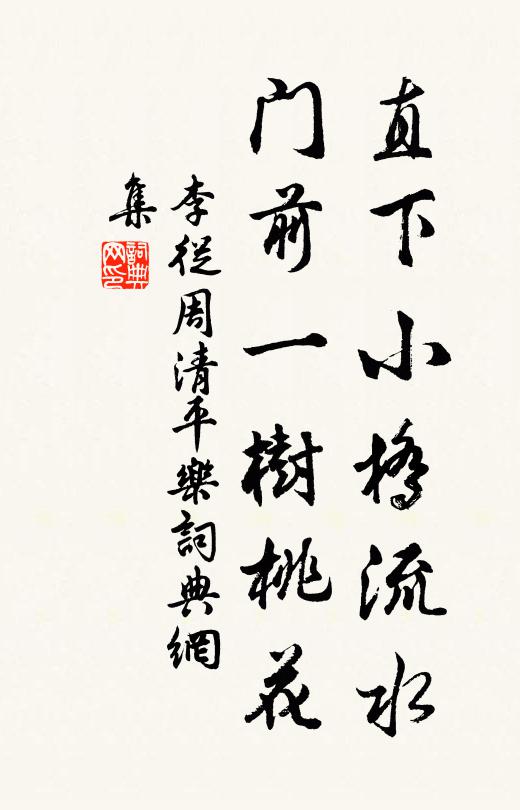 直下小橋流水
門前一樹桃花
李從周清平樂詞典網
集
詞典网印